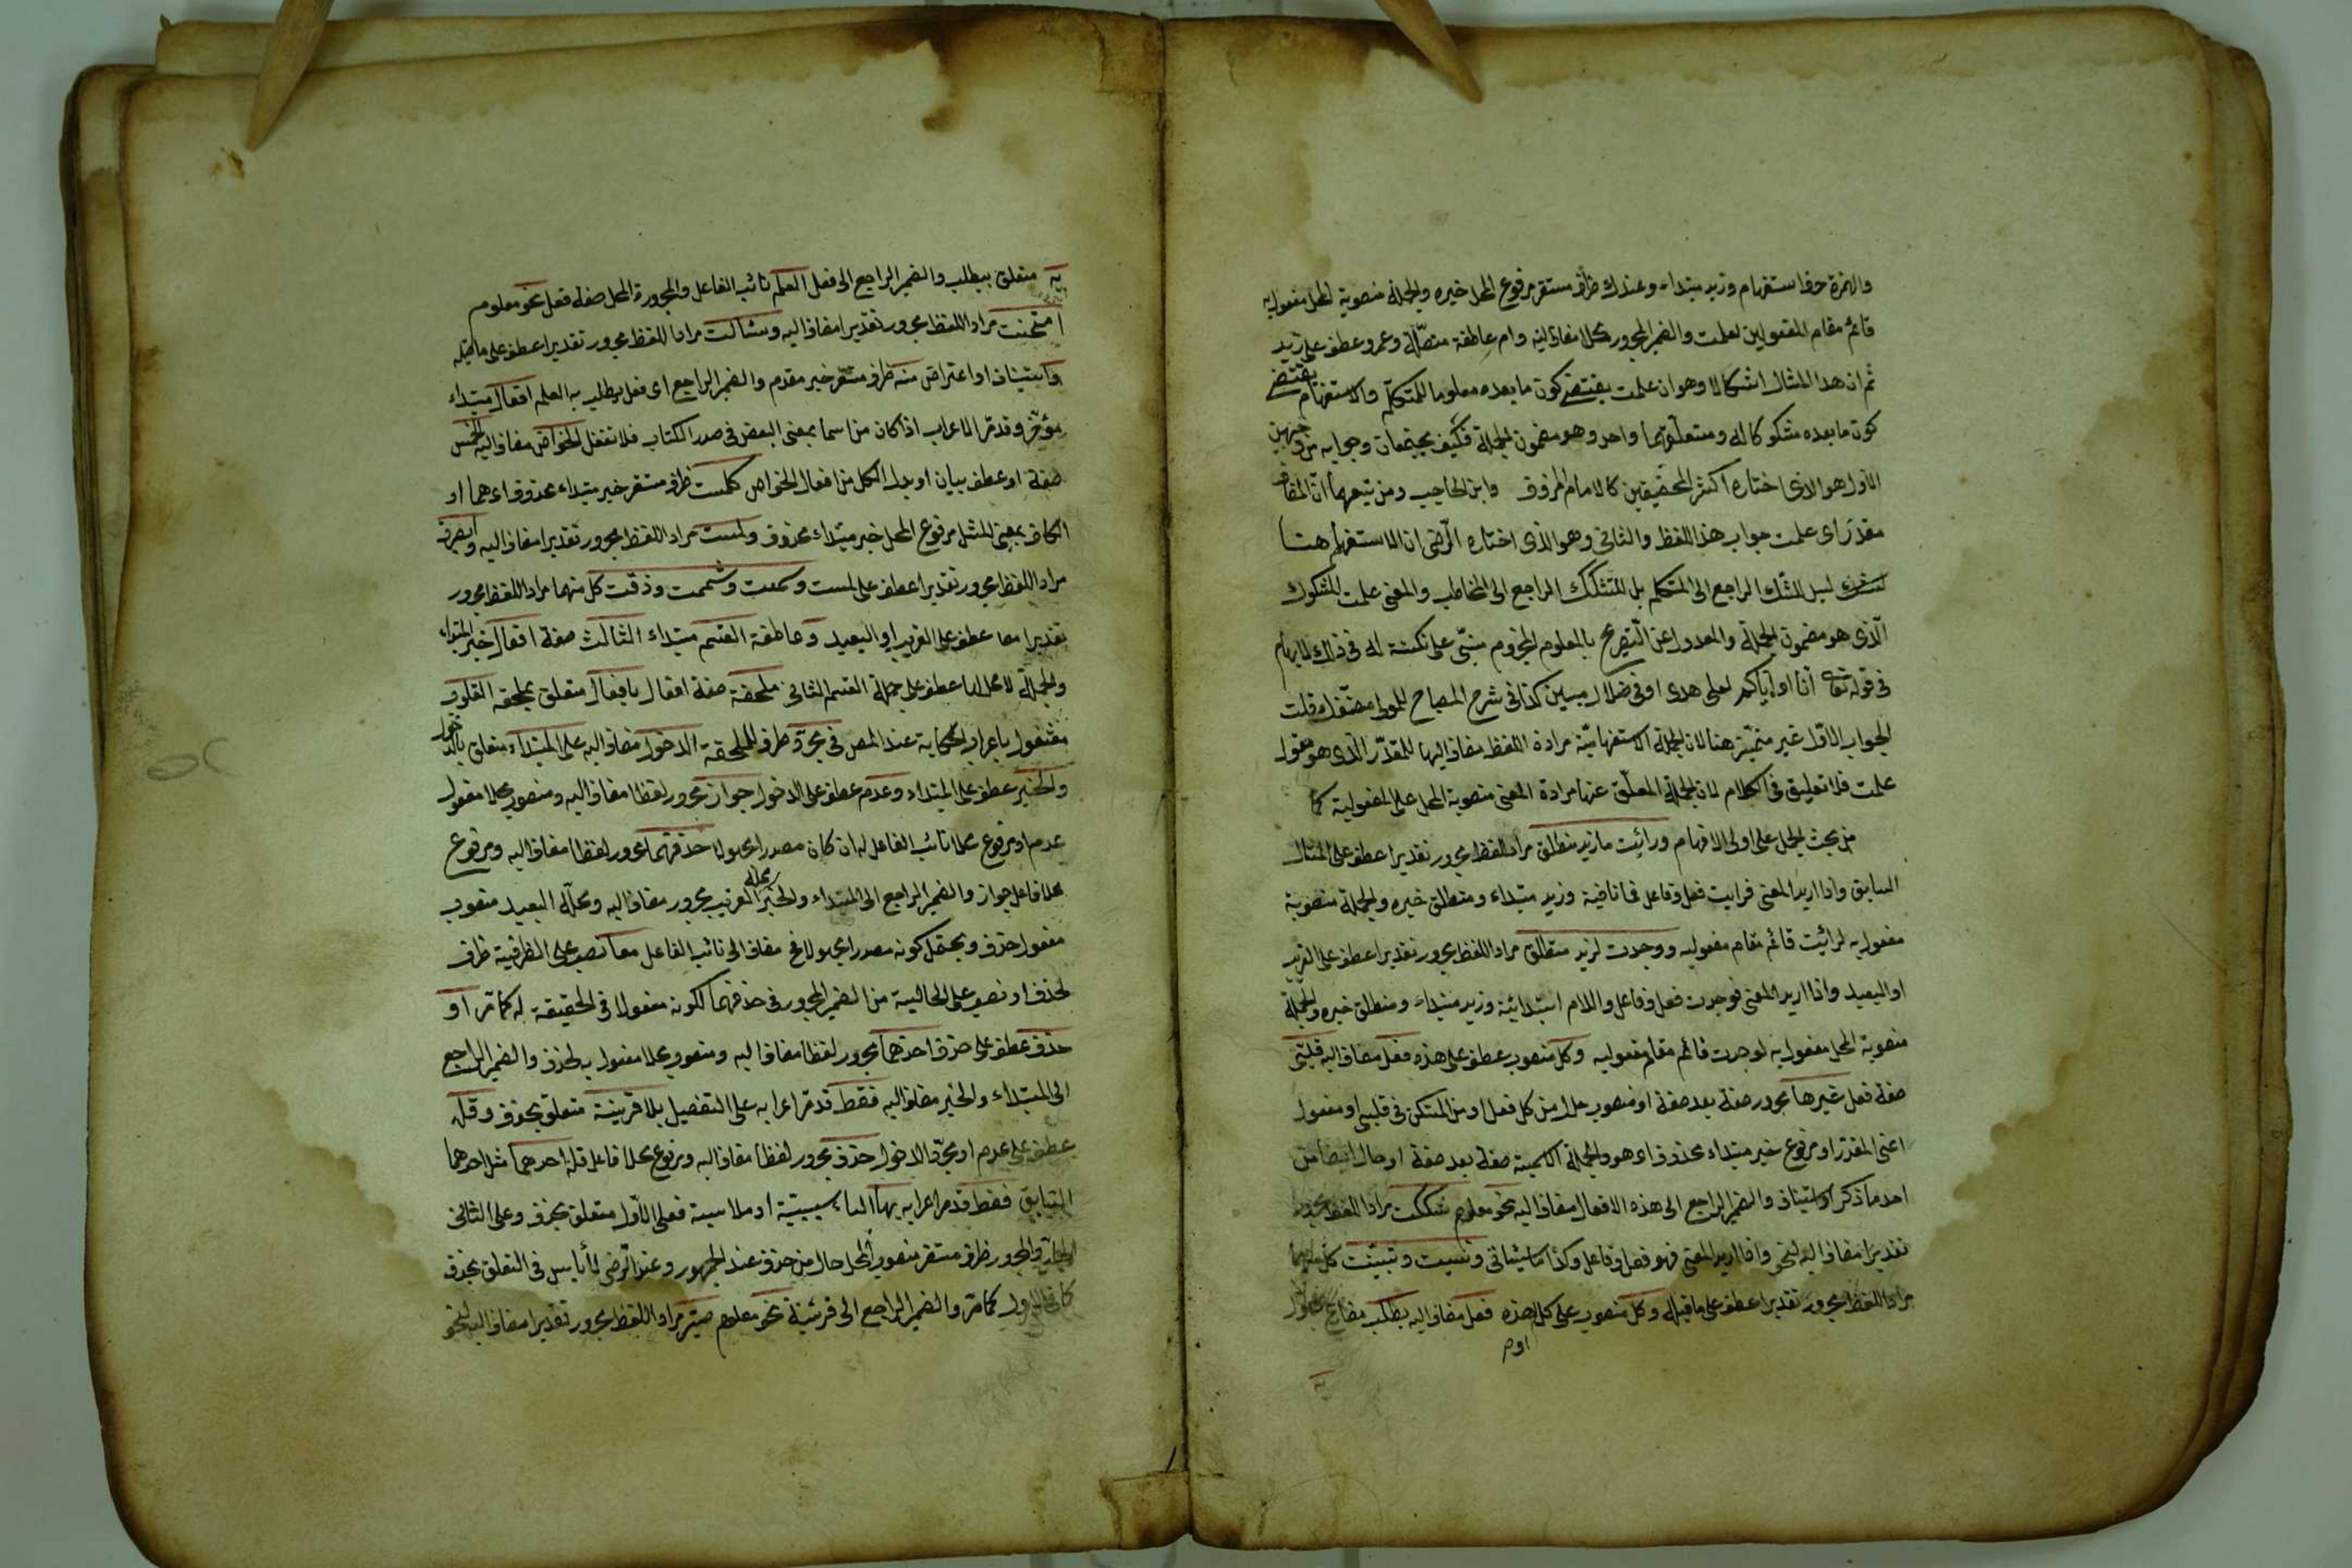 والهمزة حرف استفهام وزيد مبتداء وعندك ظرف مستقر مرفوع المحل خبره والجملة منصوبة المحل مفعول به
قائم مقام المفعولين لعلمت والضمير المجرور محلا مضاف اليه وام عاطفة متصلة وعمرو عطف على زيد
ثم ان هذا المثال اشكالا وهو ان علمت يقتضى كون ما بعده معلوما للمتكلم والاستفهام يقتضى
كون ما بعده مشكوكا له ومتعلقهما واحد وهو مضمون الجملة فكيف يجتمعان وجوابه من وجهين
الاول هو الذى اختاره اكثر المحققين كالامام المرزوق وابن الحاجب ومن تبعهما ان المضاف
مقدر اى علمت جواب هذا اللفظ والثانى وهو الذى اختاره الرضى ان الاستفهام هنا
ليس للشك الراجع الى المتكلم بل للتشكيك الراجع الى المخاطب والمعنى علمت المشكوك
الذى هو مضمون الجملة والعدول عن التصريح بالمعلوم المجزوم مبنى على نكتة له فى ذلك كالابهام
فى قوله تعالى انا او اياكم لعلى هدى او فى ضلال مبين كذا فى شرح المصباح للمولى مصنفك قلت
الجواب الاول غير متميز هنا لان الجملة الاستفهامية مرادة اللفظ مضاف اليها للمقدر الذى هو مفعول
علمت فلا تعليق فى الكلام لان الجملة المعلق عنها مرادة المعنى منصوبة المحل على المفعولية كما
من بحث الجمل على اولى الافهام ورائيت ما زيد منطلق مراد اللفظ مجرور تقديرا عطف على المثال
السابق واذا اريد المعنى فرايت فعل وفاعل فما نافية وزيد مبتداء ومنطلق خبره والجملة منصوبة
مفعول به لرائيت قائم مقام مفعوليه ووجدت لزيد منطلق مراد اللفظ مجرور تقديرا عطف على القريب
او البعيد واذا اريد المعنى فوجدت فعل وفاعل واللام ابتدائية وزيد مبتداء ومنطلق خبره والجملة
منصوبة المحل مفعول به لوجدت قائم مقام مفعوليه وكل منصوب عطف على هذه فعل مضاف اليه قلبى
صفة فعل غيرها مجرور صفة بعد صفة او منصوب حال من كل فعل او من المستكن فى قلبى او مفعول
اعنى المقدر او مرفوع خبر مبتداء محذوف اى هو والجملة الاسمية صفة بعد صفة او حال ايضا من
احد ما ذكر او استيناف والضمير الراجع الى هذه الافعال مضاف اليه نحو معلوم شككت مراد اللفظ مجرور
تقديرا مضاف اليه لنحو واذا اريد المعنى فهو فعل وفاعل وكذا ما سيأتى ونسيت وتبينت كل منهما
مراد اللفظ مجرور تقديرا عطف على ما قبله وكل منصوب على كل هذه فعل مضاف اليه يطلب مضارع مجهول
به
به متعلق بيطلب والضمير الراجع الى فعل العلم نائب الفاعل والمجرورة المحل صفة فعل نحو معلوم
امتحنت مراد اللفظ مجرور تقديرا مضاف اليه وسئالت مراد اللفظ مجرور تقديرا عطف على ما قبله
واستيناف او اعتراض منه ظرف مستقر خبر مقدم والضمير الراجع اى فعل يطلب به العلم افعال مبتداء
مؤخر وقد مر الاعراب اذا كان من اسما بمعنى البعض فى صدر الكتاب فلا تغفل الحواس مضاف اليه الخمس
صفة او عطف بيان او بدل الكل من افعال الحواس كلمست ظرف مستقر خبر مبتداء محذوف اى هما او
الكاف بمعنى المثل مرفوع المحل خبر مبتداء محذوف ولمست مراد اللفظ مجرور تقديرا مضاف اليه وابصرت
مراد اللفظ مجرور تقديرا عطف على لمست وسمعت وشممت وذقت كل منهما مراد اللفظ مجرور
تقديرا معا عطف على القريب او البعيد وعاطفة القسم مبتداء الثالث صفة افعال خبر المبتداء
والجملة لا محل لها عطف على جملة القسم الثانى ملحقة صفة افعال بافعال متعلق بملحقة القلوب
مشغول باعراب الحكاية عند المص فى مجرد ظرف للملحقة الدخول مضاف اليه على المبتداء متعلق بالدخول
والخبر عطف على المبتداء وعدم عطف على الدخول جواز مجرور لفظا مضاف اليه ومنصوب محلا مفعول
عدم او مرفوع محلا نائب الفاعل له ان كان مصدرا مجهولا حذفهما مجرور لفظا مضاف اليه ومرفوع
محلا فاعل جواز والضمير الراجع الى المبتداء والخبر محله القريب مجرور مضاف اليه ومحله البعيد منصوب
مفعول حذف ويحتمل كونه مصدرا مجهولا فح مضاف الى نائب الفاعل معا نصب على الظرفية ظرف
لحذف او نصب على الحالية من الضمير المجرور فى حذفهما لكونه مفعولا فى الحقيقة له كما مر او
حذف عطف على حذف احدهما مجرور لفظا مضاف اليه ومنصوب محلا مفعول به لحذف والضمير الراجع
الى المبتداء والخبر مضاف اليه فقط قد مر اعرابه على التفصيل بلا قرينة متعلق بحذف وقلة
عطف على عدم او مجرد الدخول حذف مجرور لفظا مضاف اليه ومرفوع محلا فاعل قلة احدهما مثل احدهما
السابق فقط قد مر اعرابه بها الباء سببية او ملابسة فعلى الاول متعلق بحذف وعلى الثانى
الجار والمجرور ظرف مستقر منصوب المحل حال من حذف عند الجمهور وعند الرضى لا بأس فى التعلق بحذف
كما فى الاول كما مر والضمير الراجع الى قرينة نحو معلوم صير مراد اللفظ مجرور تقديرا مضاف اليه لنحو